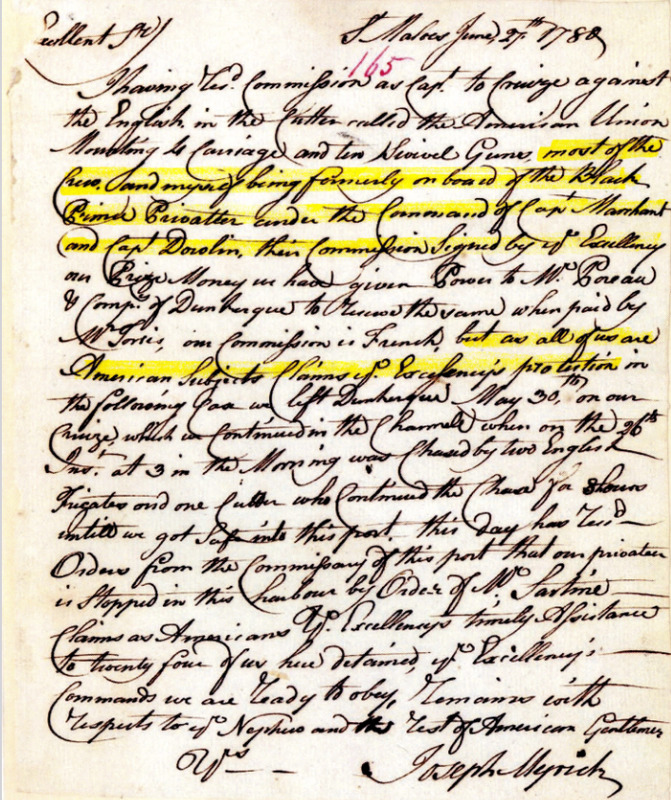 Excellent Sr/ St Maloes June, 27th 1780,
165
I having Recd. Commission as Capt. to Cruize against
the English in the Cutter called the American Union
Mounting 4 Carriage and ten Swivel Guns, most of the
Crew, and myself being formerly on board of the Black
Prince Privatter under the Command of Capt Marchant
and Capt Dowlin, their Commission Signed by yr. Excellency
our Prize Money we have given Power to Mr. Poreau
& Compy. of Dunkerque to receive the same when paid by
Mr Torris, our Commission is French, but as all of us are
American Subjects Claims yr. Excellency's protection in
the following Case we left Dunkerque May 30th, on our
Cruize, which we Continued in the Channell when on the 26th
Inst. at 3 in the Morning was Chased by two English
Frigates and one Cutter who Continued the Chase for 8 hours
untill we got Safe into this port. this day has Recd
Orders from the Commissary of this port that our privateer
is Stopped in this harbour by Order of Mr. Sartine
Claims as Americans Yr. Excellency's timely Assistance
to twenty four of us here detained, yr. Excellency's
Commands we are ready to obey, Remains with
respects to yr. Nephew and the rest of American Gentlemen
Yrs Joseph Myrick